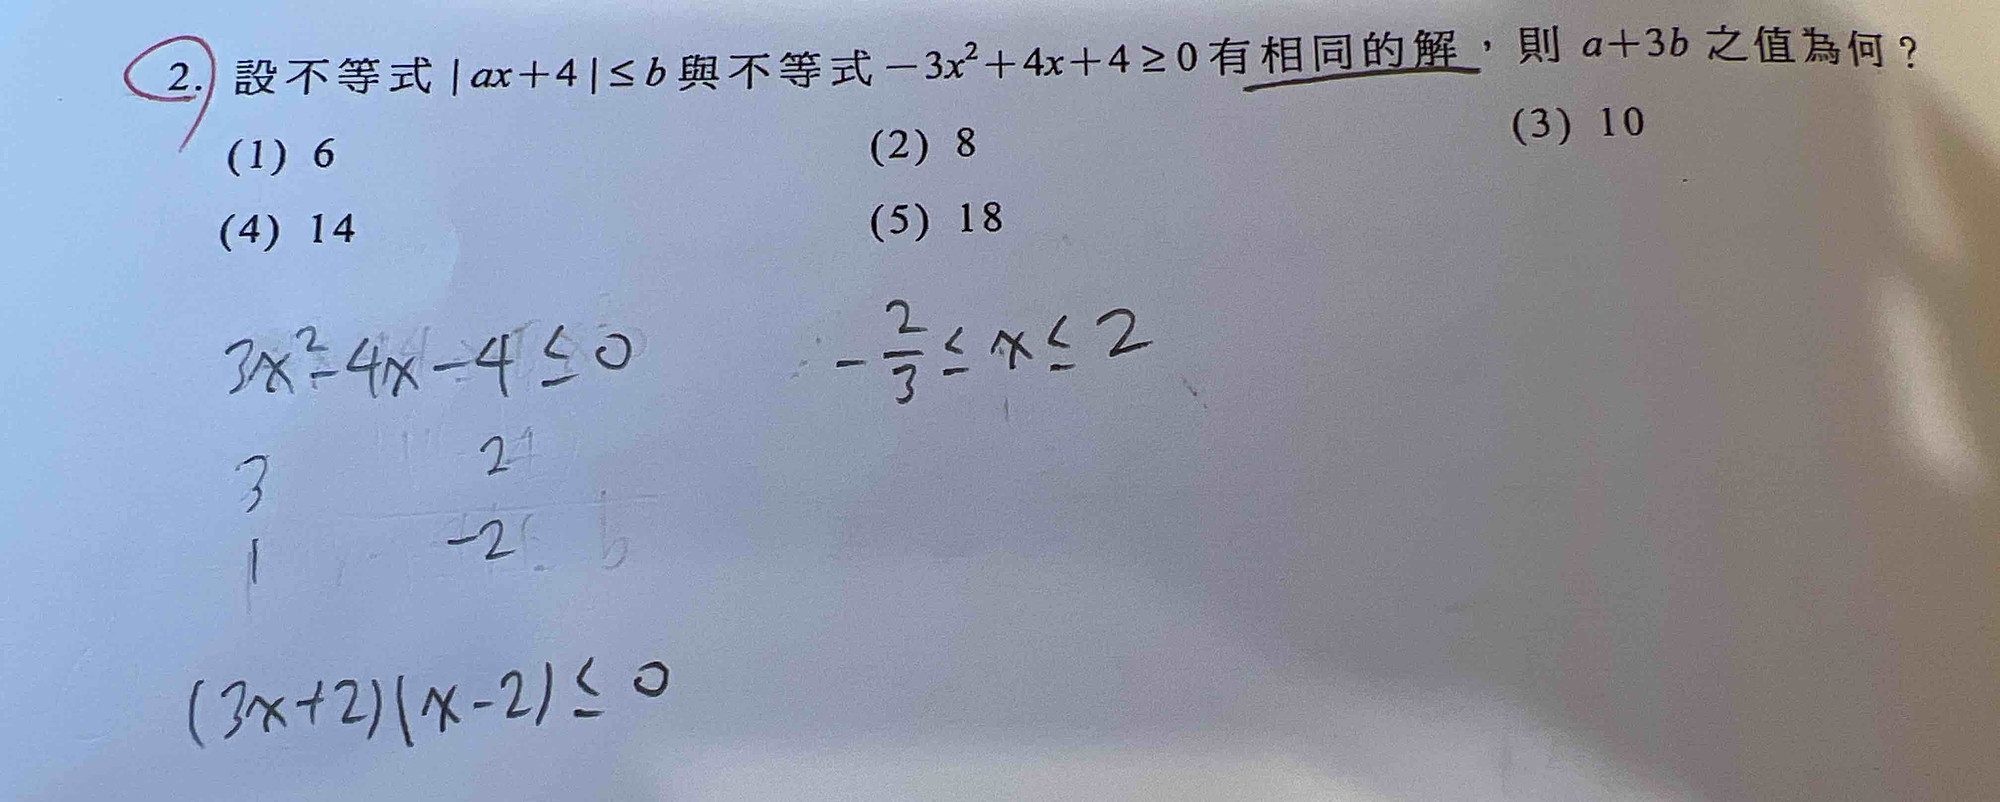 2. 設不等式 |ax+4|≤b 與不等式 −3x²+4x+4≥0 有相同的解，則 a+3b 之值為何？
(1) 6 (2) 8 (3) 10
(4) 14 (5) 18
3x²-4x-4≤0 -2/3≤x≤2
3 2
1 -2
(3x+2)(x-2)≤0